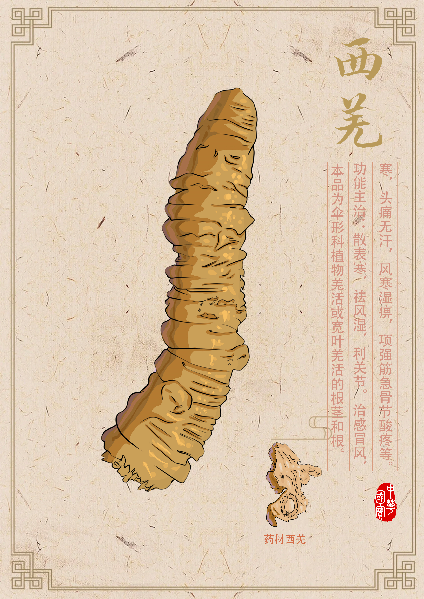 西羌
本品为伞形科植物羌活或宽叶羌活的根茎和根。
功能主治：散表寒，祛风湿，利关节。治感冒风
寒，头痛无汗，风寒湿痹，项强筋急骨节酸疼等
药材西羌